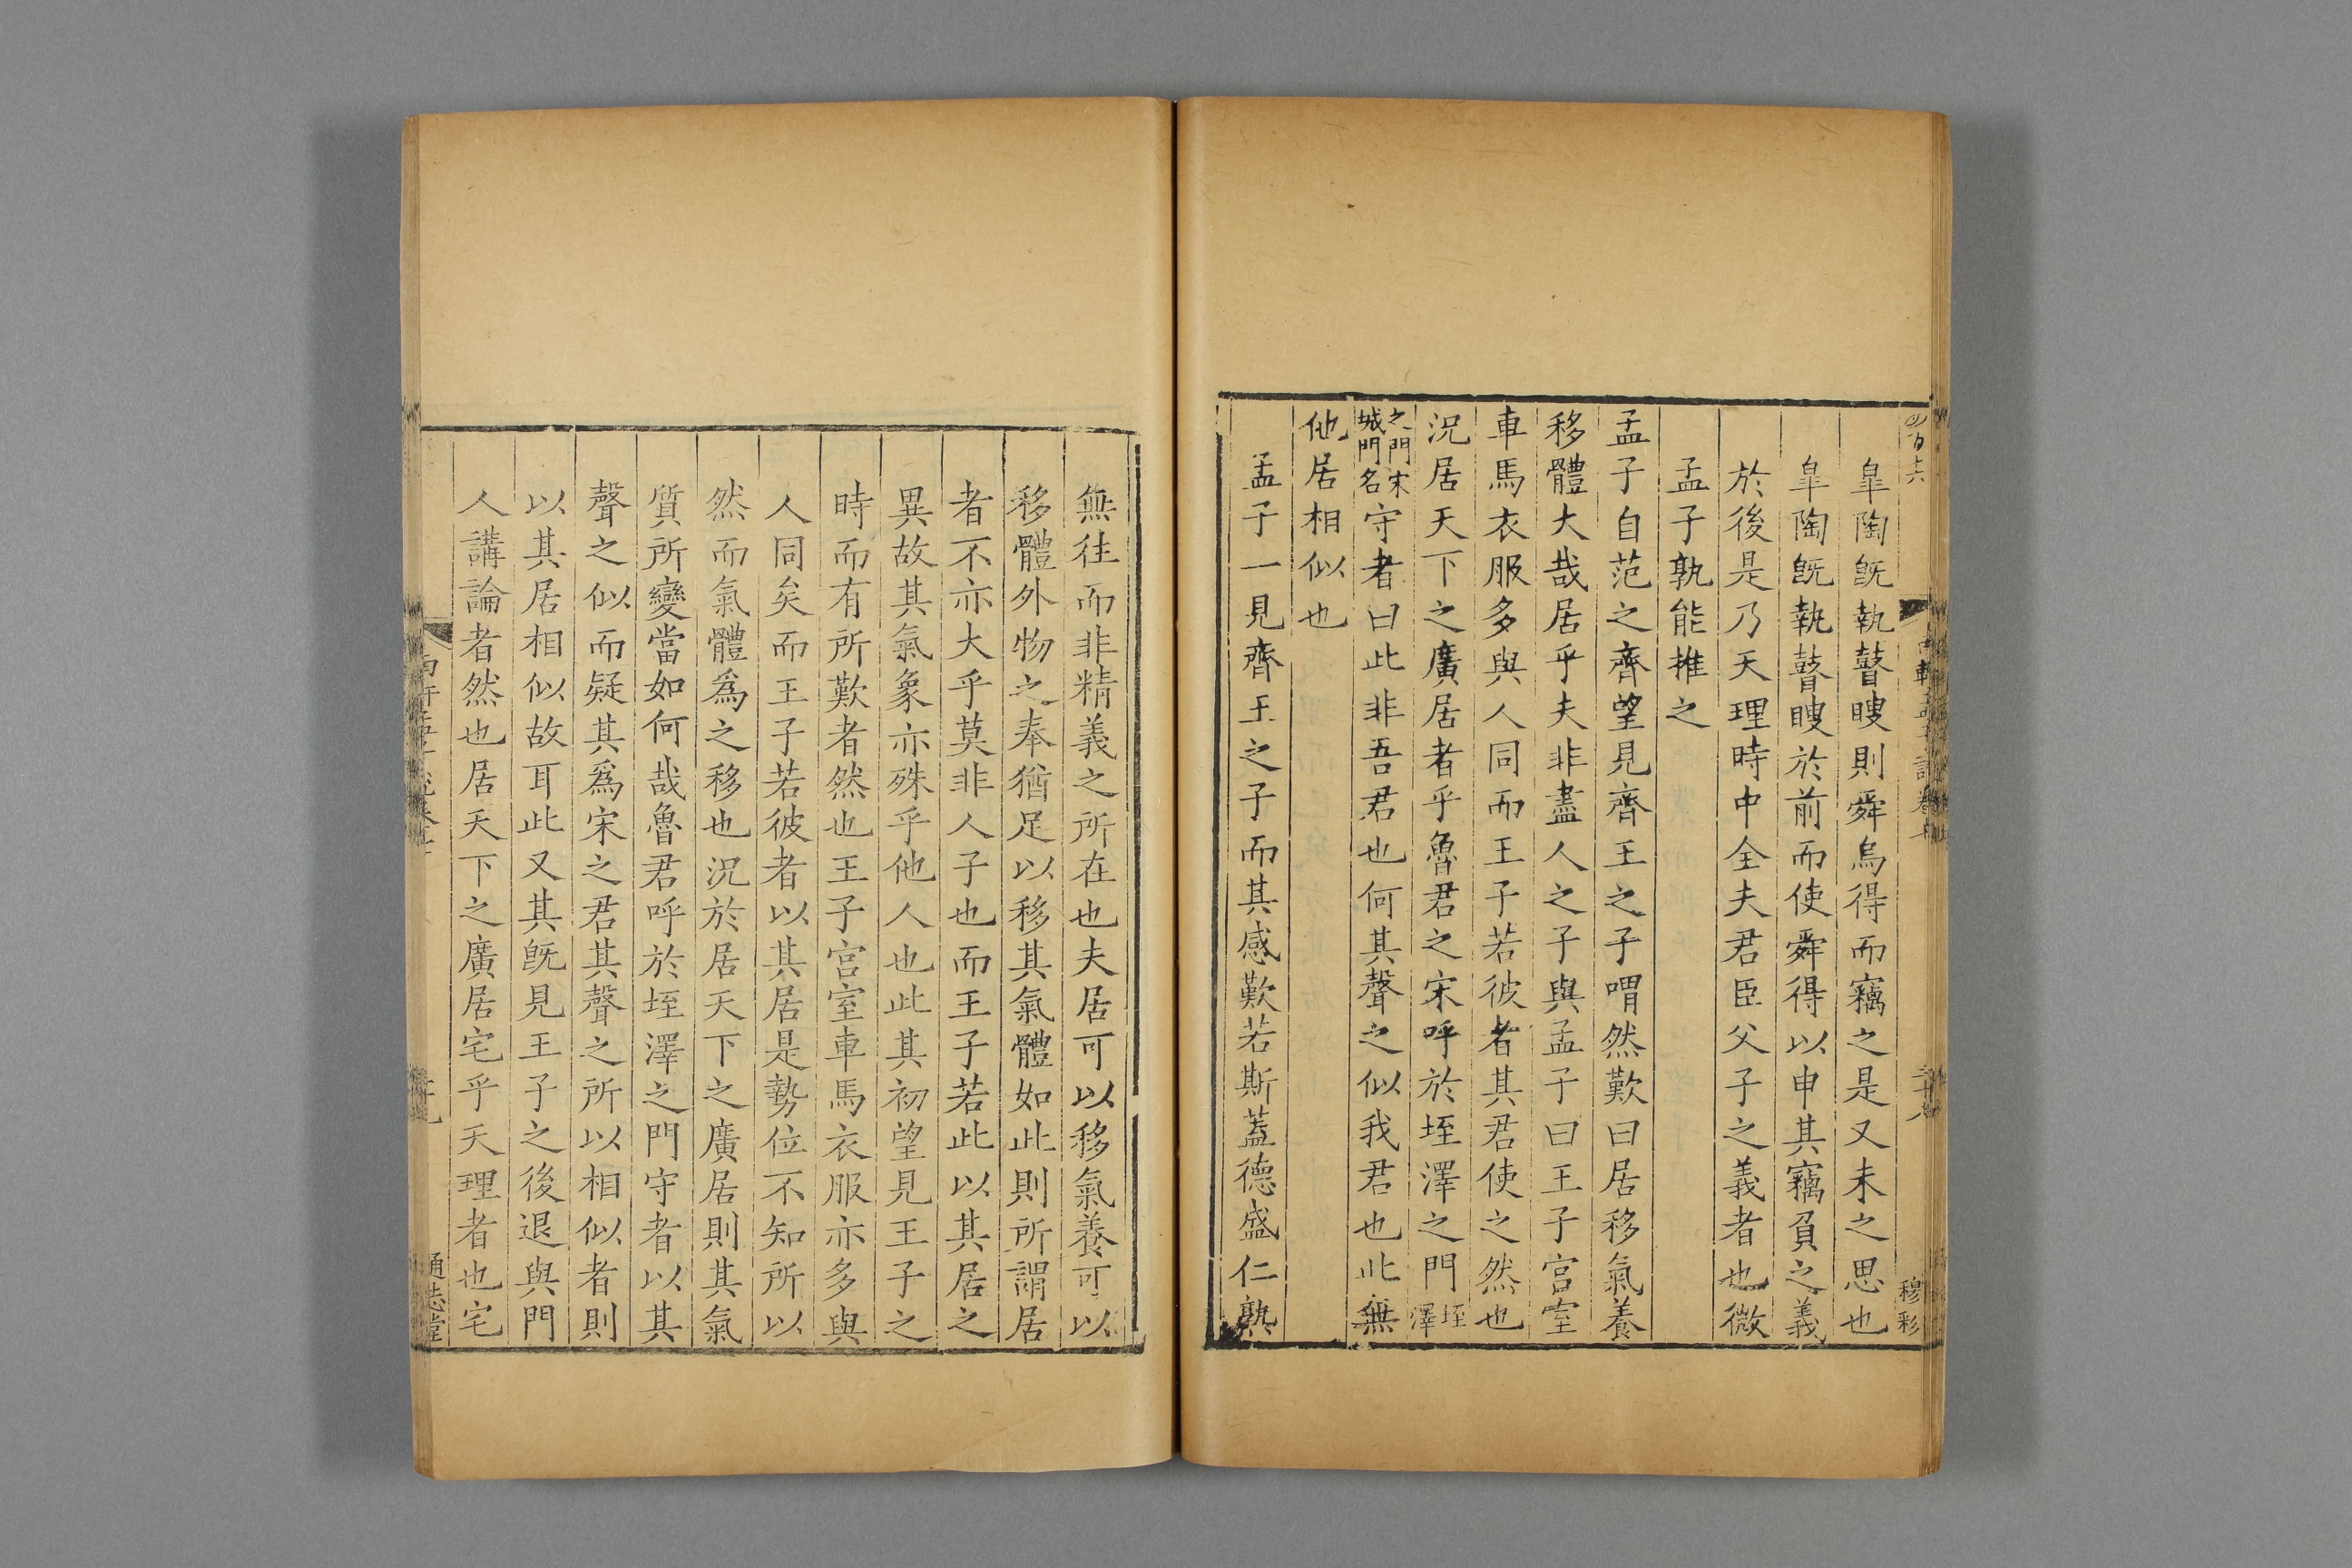 皐陶旣執瞽瞍則舜烏得而竊之是又未之思也
皐陶旣執瞽瞍於前而使舜得以申其竊負之義
於後是乃天理時中全夫君臣父子之義者也微
孟子孰能推之
孟子自范之齊望見齊王之子喟然歎曰居移氣養
移體大哉居乎夫非盡人之子與孟子曰王子宮室
車馬衣服多與人同而王子若彼者其君使之然也
況居天下之廣居者乎魯君之宋呼於垤澤之門垤澤
之門宋城門名守者曰此非吾君也何其聲之似我君也此無
他居相似也
孟子一見齊王之子而其感歎若斯蓋德盛仁熟
無往而非精義之所在也夫居可以移氣養可以
移體外物之奉猶足以移其氣體如此則所謂居
者不亦大乎莫非人子也而王子若此以其居之
異故其氣象亦殊乎他人也此其初望見王子之
時而有所歎者然也王子宮室車馬衣服亦多與
人同矣而王子若彼者以其居是勢位不知所以
然而氣體爲之移也況於居天下之廣居則其氣
質所變當如何哉魯君呼於垤澤之門守者以其
聲之似而疑其爲宋之君其聲之所以相似者則
以其居相似故耳此又其旣見王子之後退與門
人講論者然也居天下之廣居宅乎天理者也宅
通志堂
穆彩